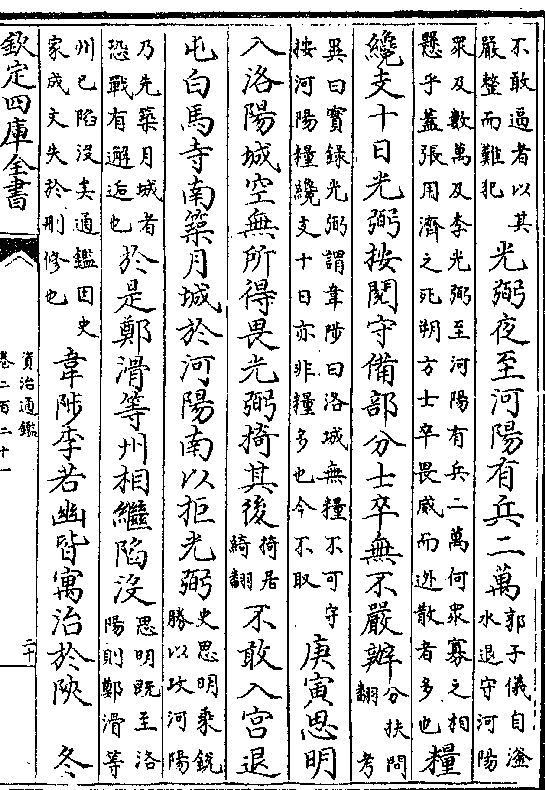 不敢逼者以其嚴整而難犯光弼夜至河陽有兵二萬郭子儀自滏水退守河陽
眾及數萬及李光弼至河陽有兵二萬何眾寡之相懸乎蓋張用濟之死朔方士卒畏威而逃散者多也糧
纔支十日光弼按閱守備部分士卒無不嚴辦分扶問翻考
異曰實録光弼謂韋陟曰洛城無糧不可守按河陽糧纔支十日亦非糧多也今不取庚寅思明
入洛陽城空無所得畏光弼掎其後掎居綺翻不敢入宮退
屯白馬寺南築月城於河陽南以拒光弼史思明乘銳勝以攻河陽
乃先築月城者恐戰有邂逅也於是鄭滑等州相繼陷沒思明既至洛陽則鄭滑等
州已陷沒矣通鑑因史家成文失於刪修也韋陟李若幽皆寓治於陜 冬
欽定四庫全書
資治通鑑
卷二百二十一
二十